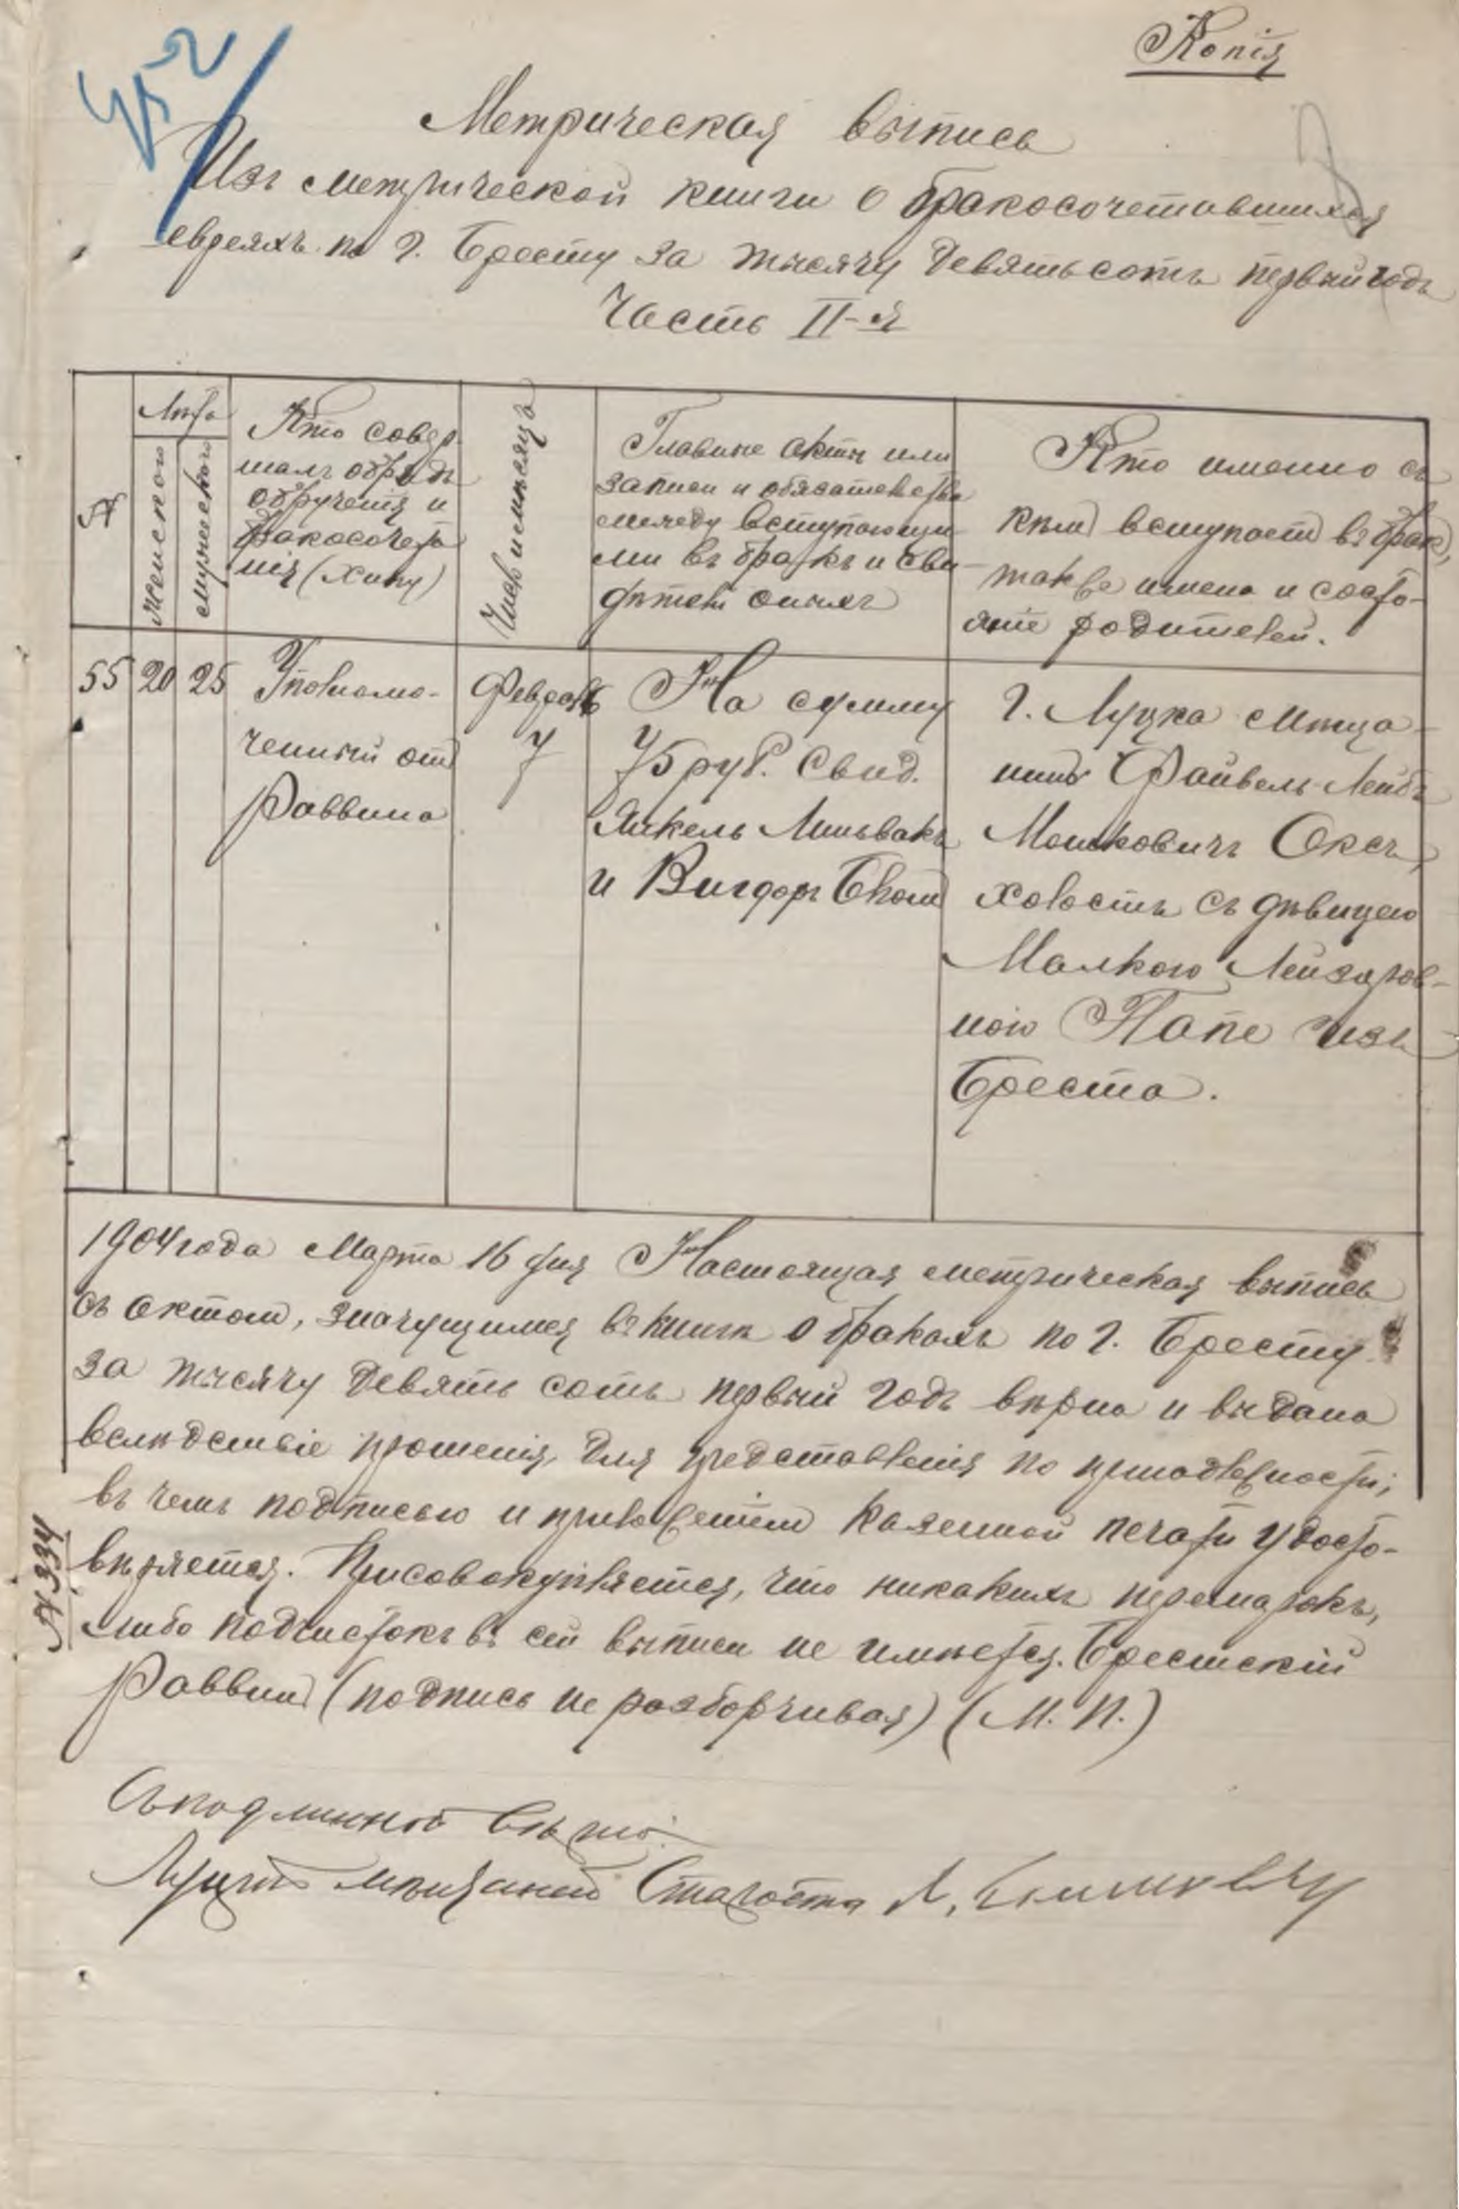 Копія
452
Метрическая выпись
Изъ метрической книги о бракосочетавшихся
евреяхъ по г. Бресту за тысячу девятьсотъ первый годъ
Часть II-я
№
Лѣта
Женскаго
Мужескаго
Кто совер-
шалъ обрядъ
обрученія и
бракосочета
нія (хипу)
Число и мѣсяцъ
Главные акты или
записи и обязательства
между вступающи
ми въ бракъ и сви-
дѣтели оныхъ
Кто именно съ
кѣмъ вступаетъ въ бракъ,
также имена и состо-
яніе родителей.
55
20
25
Уполномо-
ченный отъ
Раввина
Февраль
7
На сумму
75 руб. Свид.
Янкель Линвакъ
и Вигдоръ Бломъ
г. Луцка мѣща-
нинъ Файвель-Лейбъ
Мошковичъ Оксъ,
холостъ съ дѣвицею
Малкою Лейзаров-
ною Папе изъ
Бреста.
1904 года Марта 16 дня Настоящая метрическая выпись
съ актомъ, значущимся въ книгѣ о бракахъ по г. Бресту
за тысячу девять сотъ первый годъ вѣрна и выдана
вслѣдствіе прошенія, для представленія по принадлежности;
въ чемъ подписью и приложеніемъ казенной печати удосто-
вѣряется. Присовокупляется, что никакихъ перемарокъ,
либо подчистокъ въ сей выписи не имѣется. Брестскій
Раввинъ (подпись не разборчивая) (М. П.)
№ 334
Съ подлинной вѣрно:
Луцкій мѣщанскій Староста